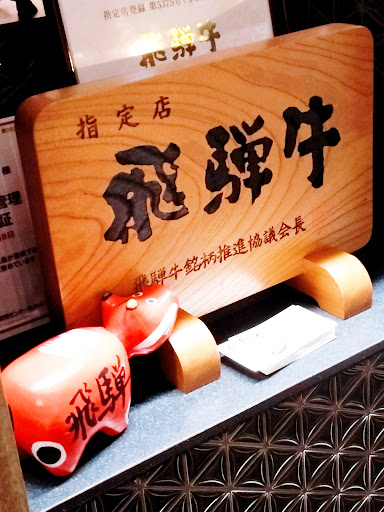 指定店登録 第5375号
飛騨牛
指定店
飛騨牛
飛騨牛銘柄推進協議会長
飛騨
管理
証